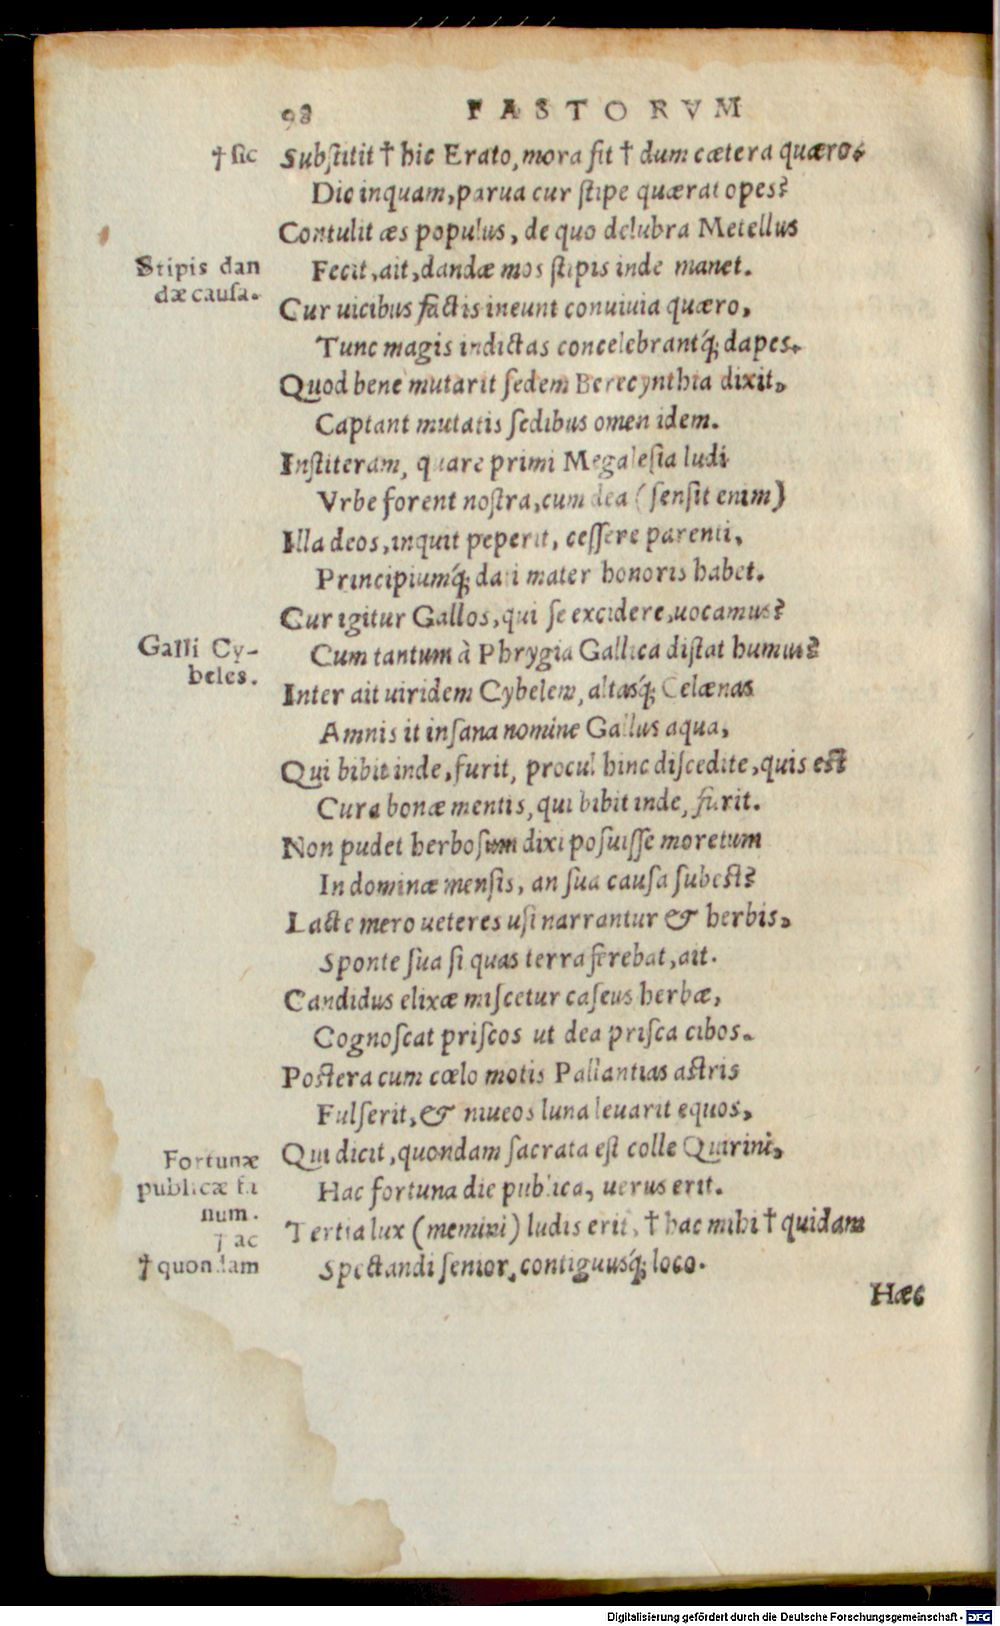 98 FASTORVM
† sic Substitit † hic Erato, mora fit † dum cætera quæro,
Dic inquam, parua cur stipe quærat opes?
Contulit æs populus, de quo delubra Metellus
Stipis dan
Fecit, ait, dandæ mos stipis inde manet.
dæ causa.
Cur uicibus factis ineunt conuiuia quæro,
Tunc magis indictas concelebrantq́; dapes.
Quod bene mutarit sedem Berecynthia dixit,
Captant mutatis sedibus omen idem.
Institeram, quare primi Megalesia ludi
Vrbe forent nostra, cum dea (sensit enim)
Illa deos, inquit peperit, cessere parenti,
Principiumq́; dati mater honoris habet.
Cur igitur Gallos, qui se excidere, uocamus?
Galli Cy-
Cum tantum à Phrygia Gallica distat humus?
beles.
Inter ait uiridem Cybelen, altasq́; Celænas
Amnis it insana nomine Gallus aqua,
Qui bibit inde, furit, procul hinc discedite, quis est
Cura bonæ mentis, qui bibit inde, furit.
Non pudet herbosum dixi posuisse moretum
In dominæ mensis, an sua causa subest?
Lacte mero ueteres usi narrantur & herbis,
Sponte sua si quas terra ferebat, ait.
Candidus elixæ miscetur caseus herbæ,
Cognoscat priscos ut dea prisca cibos.
Postera cum cœlo motis Pallantias astris
Fulserit, & niueos luna leuarit equos,
Fortunæ
Qui dicit, quondam sacrata est colle Quirini,
publicæ fa
Hac fortuna die publica, uerus erit.
num.
Tertia lux (memini) ludis erit, † hac mihi † quidam
† ac
† quondam
Spectandi senior, contiguusq́; loco.
Hæc
Digitalisierung gefördert durch die Deutsche Forschungsgemeinschaft - DFG